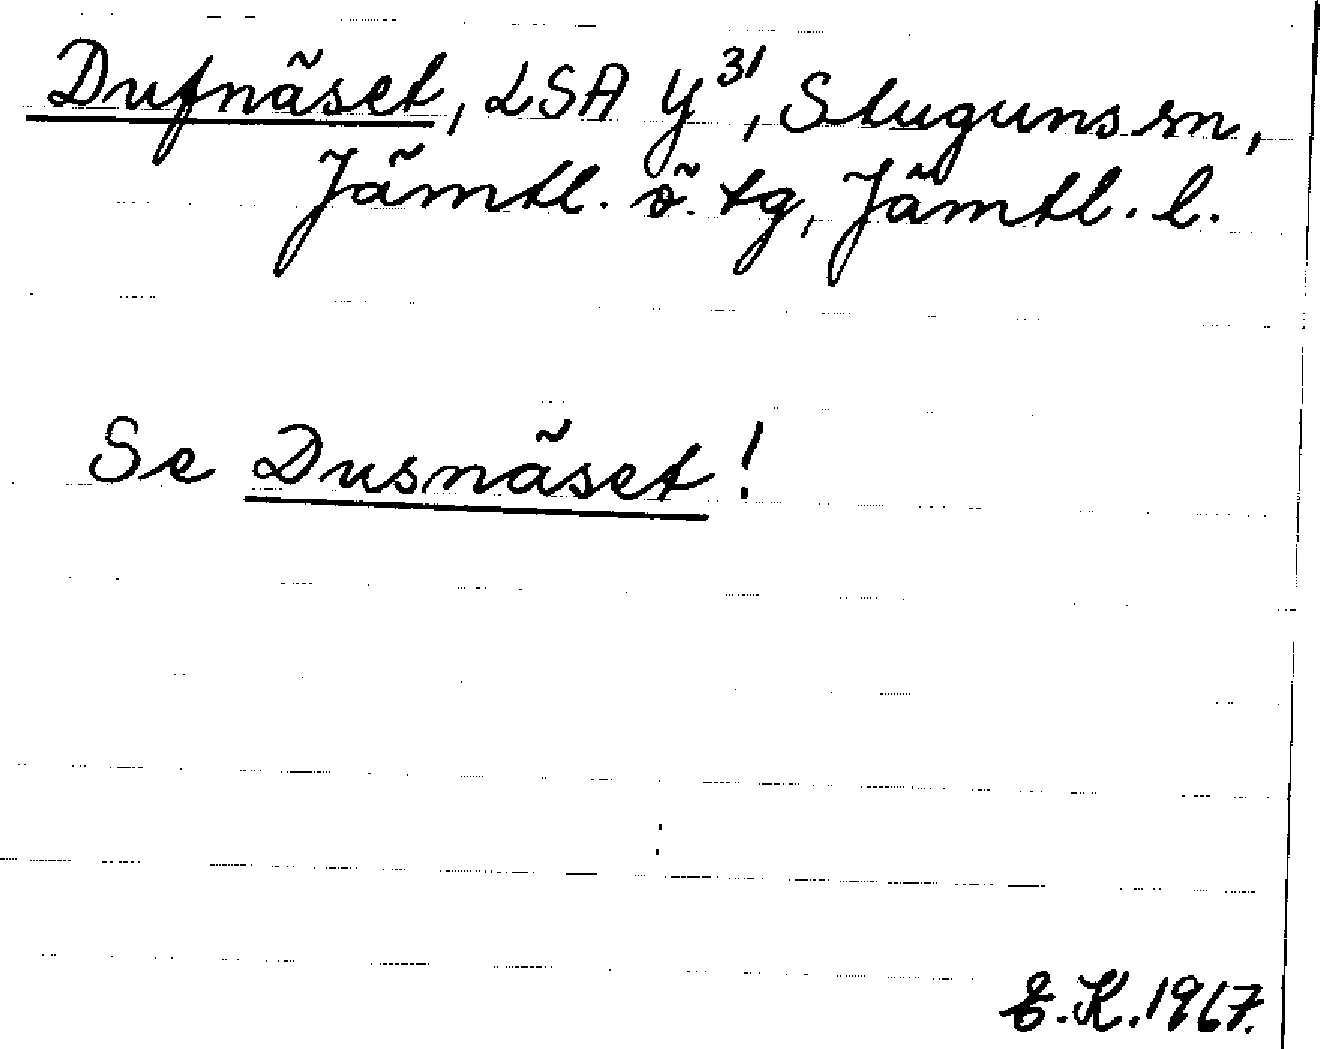 Dufnäset, LSA Y³¹, Stuguns sn,
Jämtl. ö. tg, Jämtl. l.
Se Dusnäset!
E.K.1967.